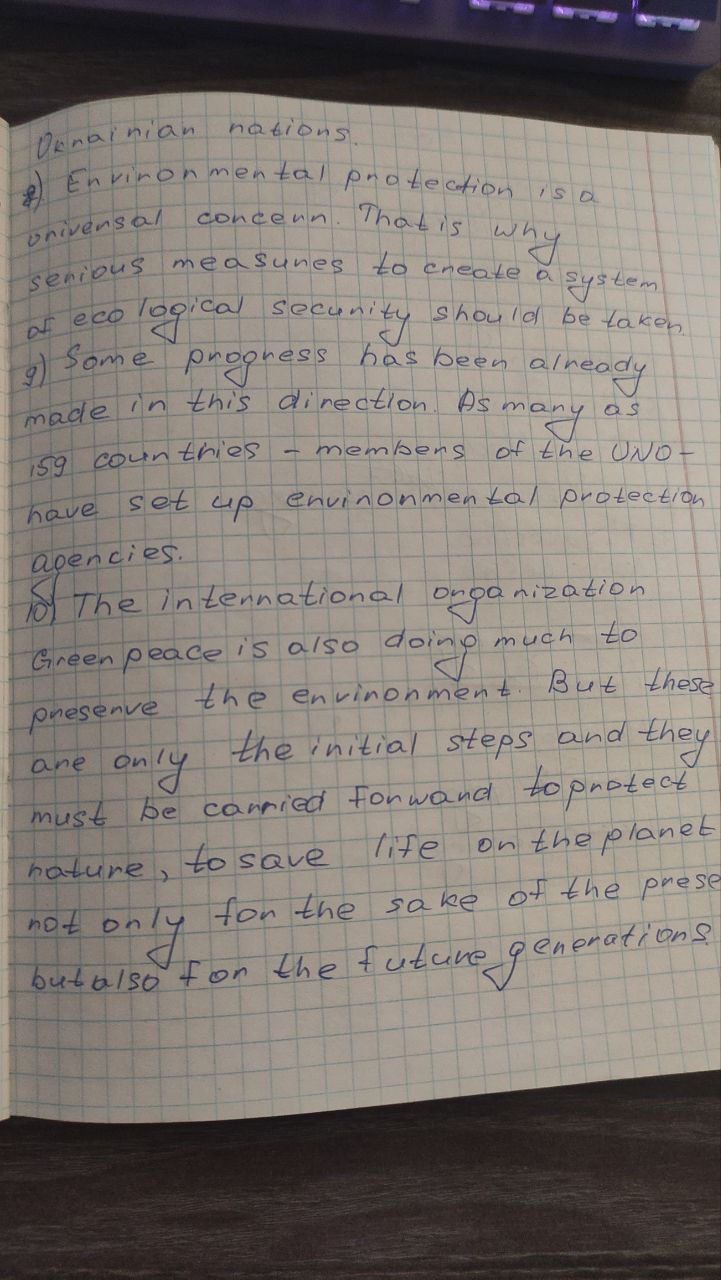 Ukrainian nations.
8) Environmental protection is a
universal concern. That is why
serious measures to create a system
of ecological security should be taken.
9) Some progress has been already
made in this direction. As many as
159 countries - members of the UNO -
have set up environmental protection
agencies.
10) The international organization
Greenpeace is also doing much to
preserve the environment. But these
are only the initial steps and they
must be carried forward to protect
nature, to save life on the planet
not only for the sake of the prese
but also for the future generations.